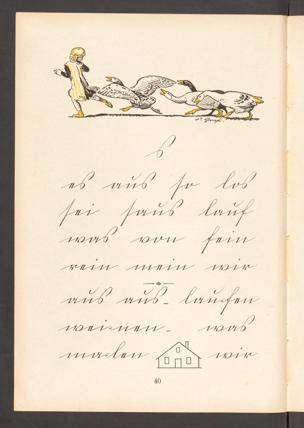 s
es aus so los
sei saus lauf
was von fein
rein mein wir
aus aus- laufen
weinen- was
malen wir
40